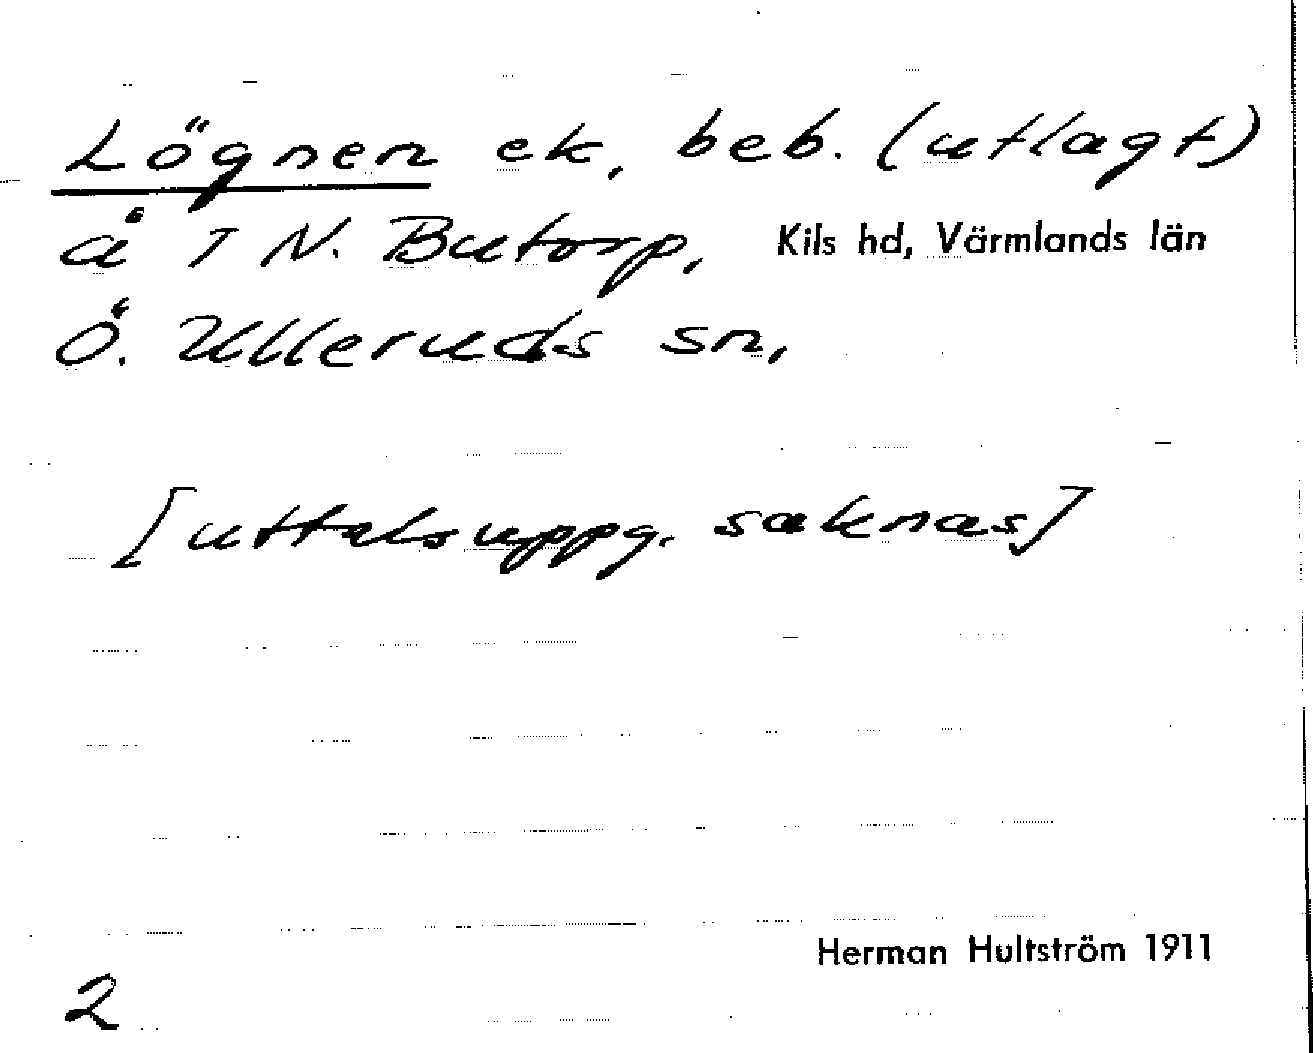 Lögnen ek, beb. (utlagt)
å 7 N. Butorp, Kils hd, Värmlands län
Ö. Ulleruds sn,
[uttalsuppg. saknas]
Herman Hultström 1911
2